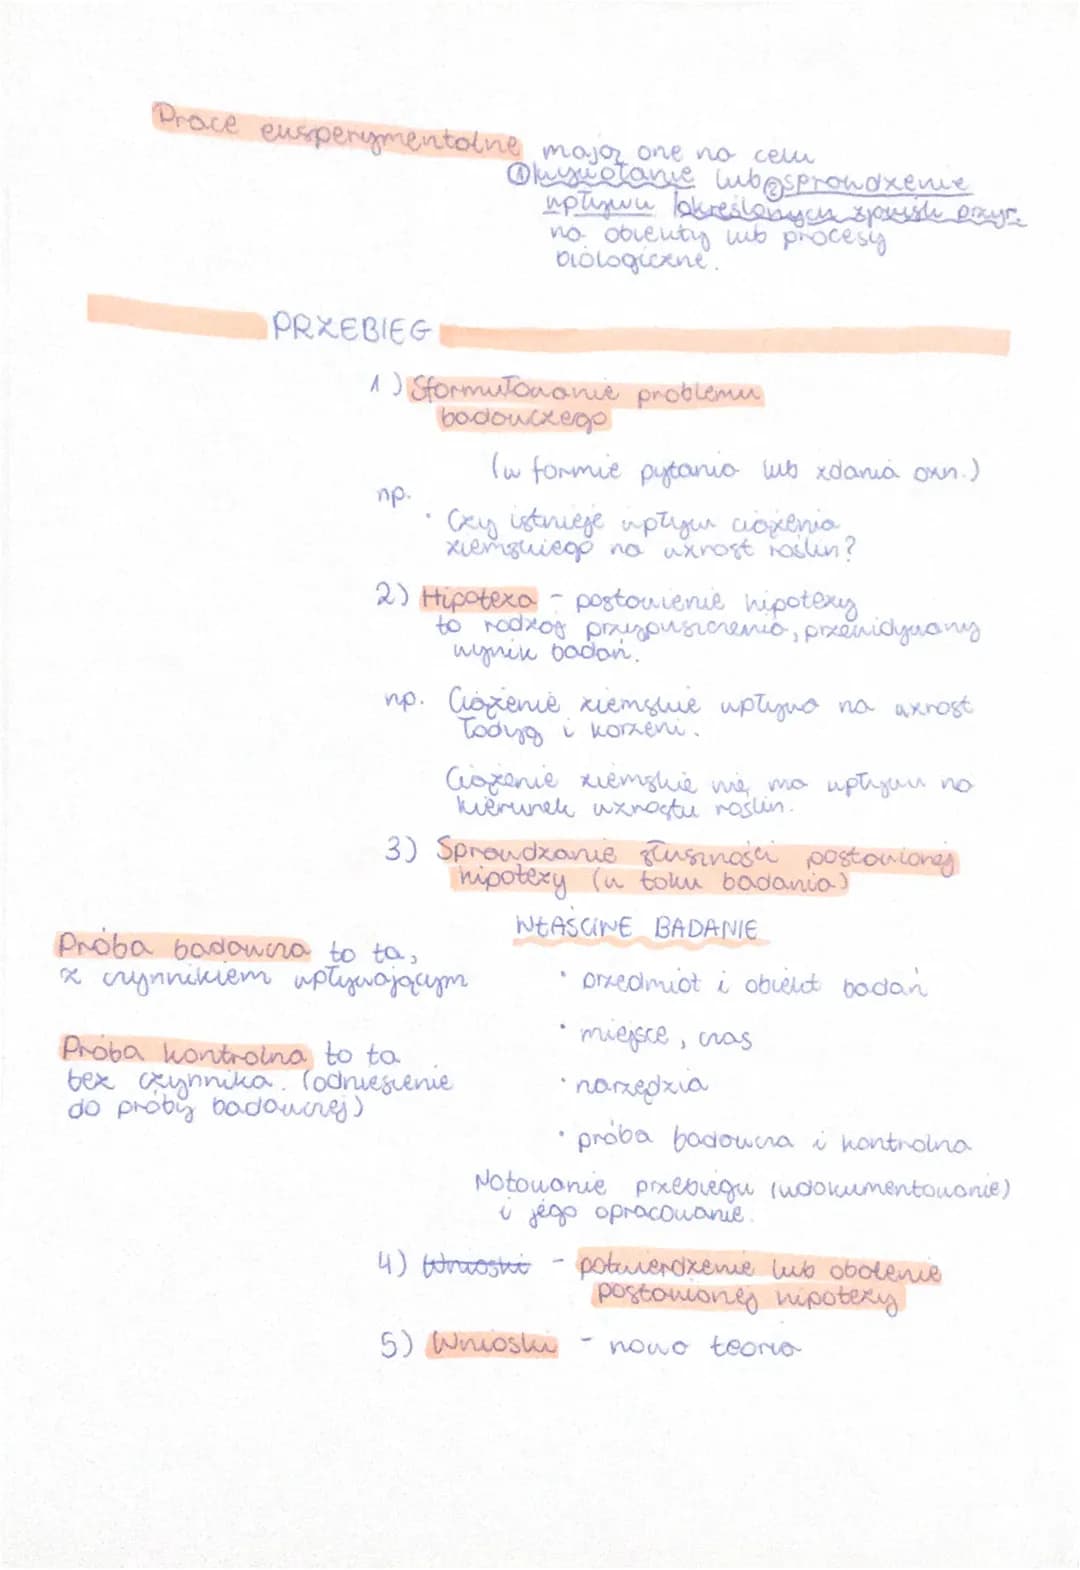 Prace eksperymentalne mają one na celu
① wywołanie lub ② sprawdzenie
wpływu określonych zjawisk przyr.
na obiekty lub procesy
biologiczne.
PRZEBIEG
1) Sformułowanie problemu
badawczego
(w formie pytania lub zdania ozn.)
np.
· Czy istnieje wpływ ciążenia
ziemskiego na wzrost roślin?
2) Hipoteza - postawienie hipotezy
to rodzaj przypuszczenia, przewidywany
wynik badań.
np. Ciążenie ziemskie wpływa na wzrost
łodyg i korzeni.
Ciążenie ziemskie nie ma wpływu na
kierunek wzrostu roślin.
3) Sprawdzanie słuszności postawionej
hipotezy (w toku badania)
WŁAŚCIWE BADANIE
· przedmiot i obiekt badań
· miejsce, czas
· narzędzia
· próba badawcza i kontrolna
Próba badawcza to ta,
z czynnikiem wpływającym
Próba kontrolna to ta
bez czynnika. (odniesienie
do próby badawczej)
Notowanie przebiegu (udokumentowanie)
i jego opracowanie.
4) Wnioski - potwierdzenie lub obalenie
postawionej hipotezy
5) Wnioski - nowa teoria